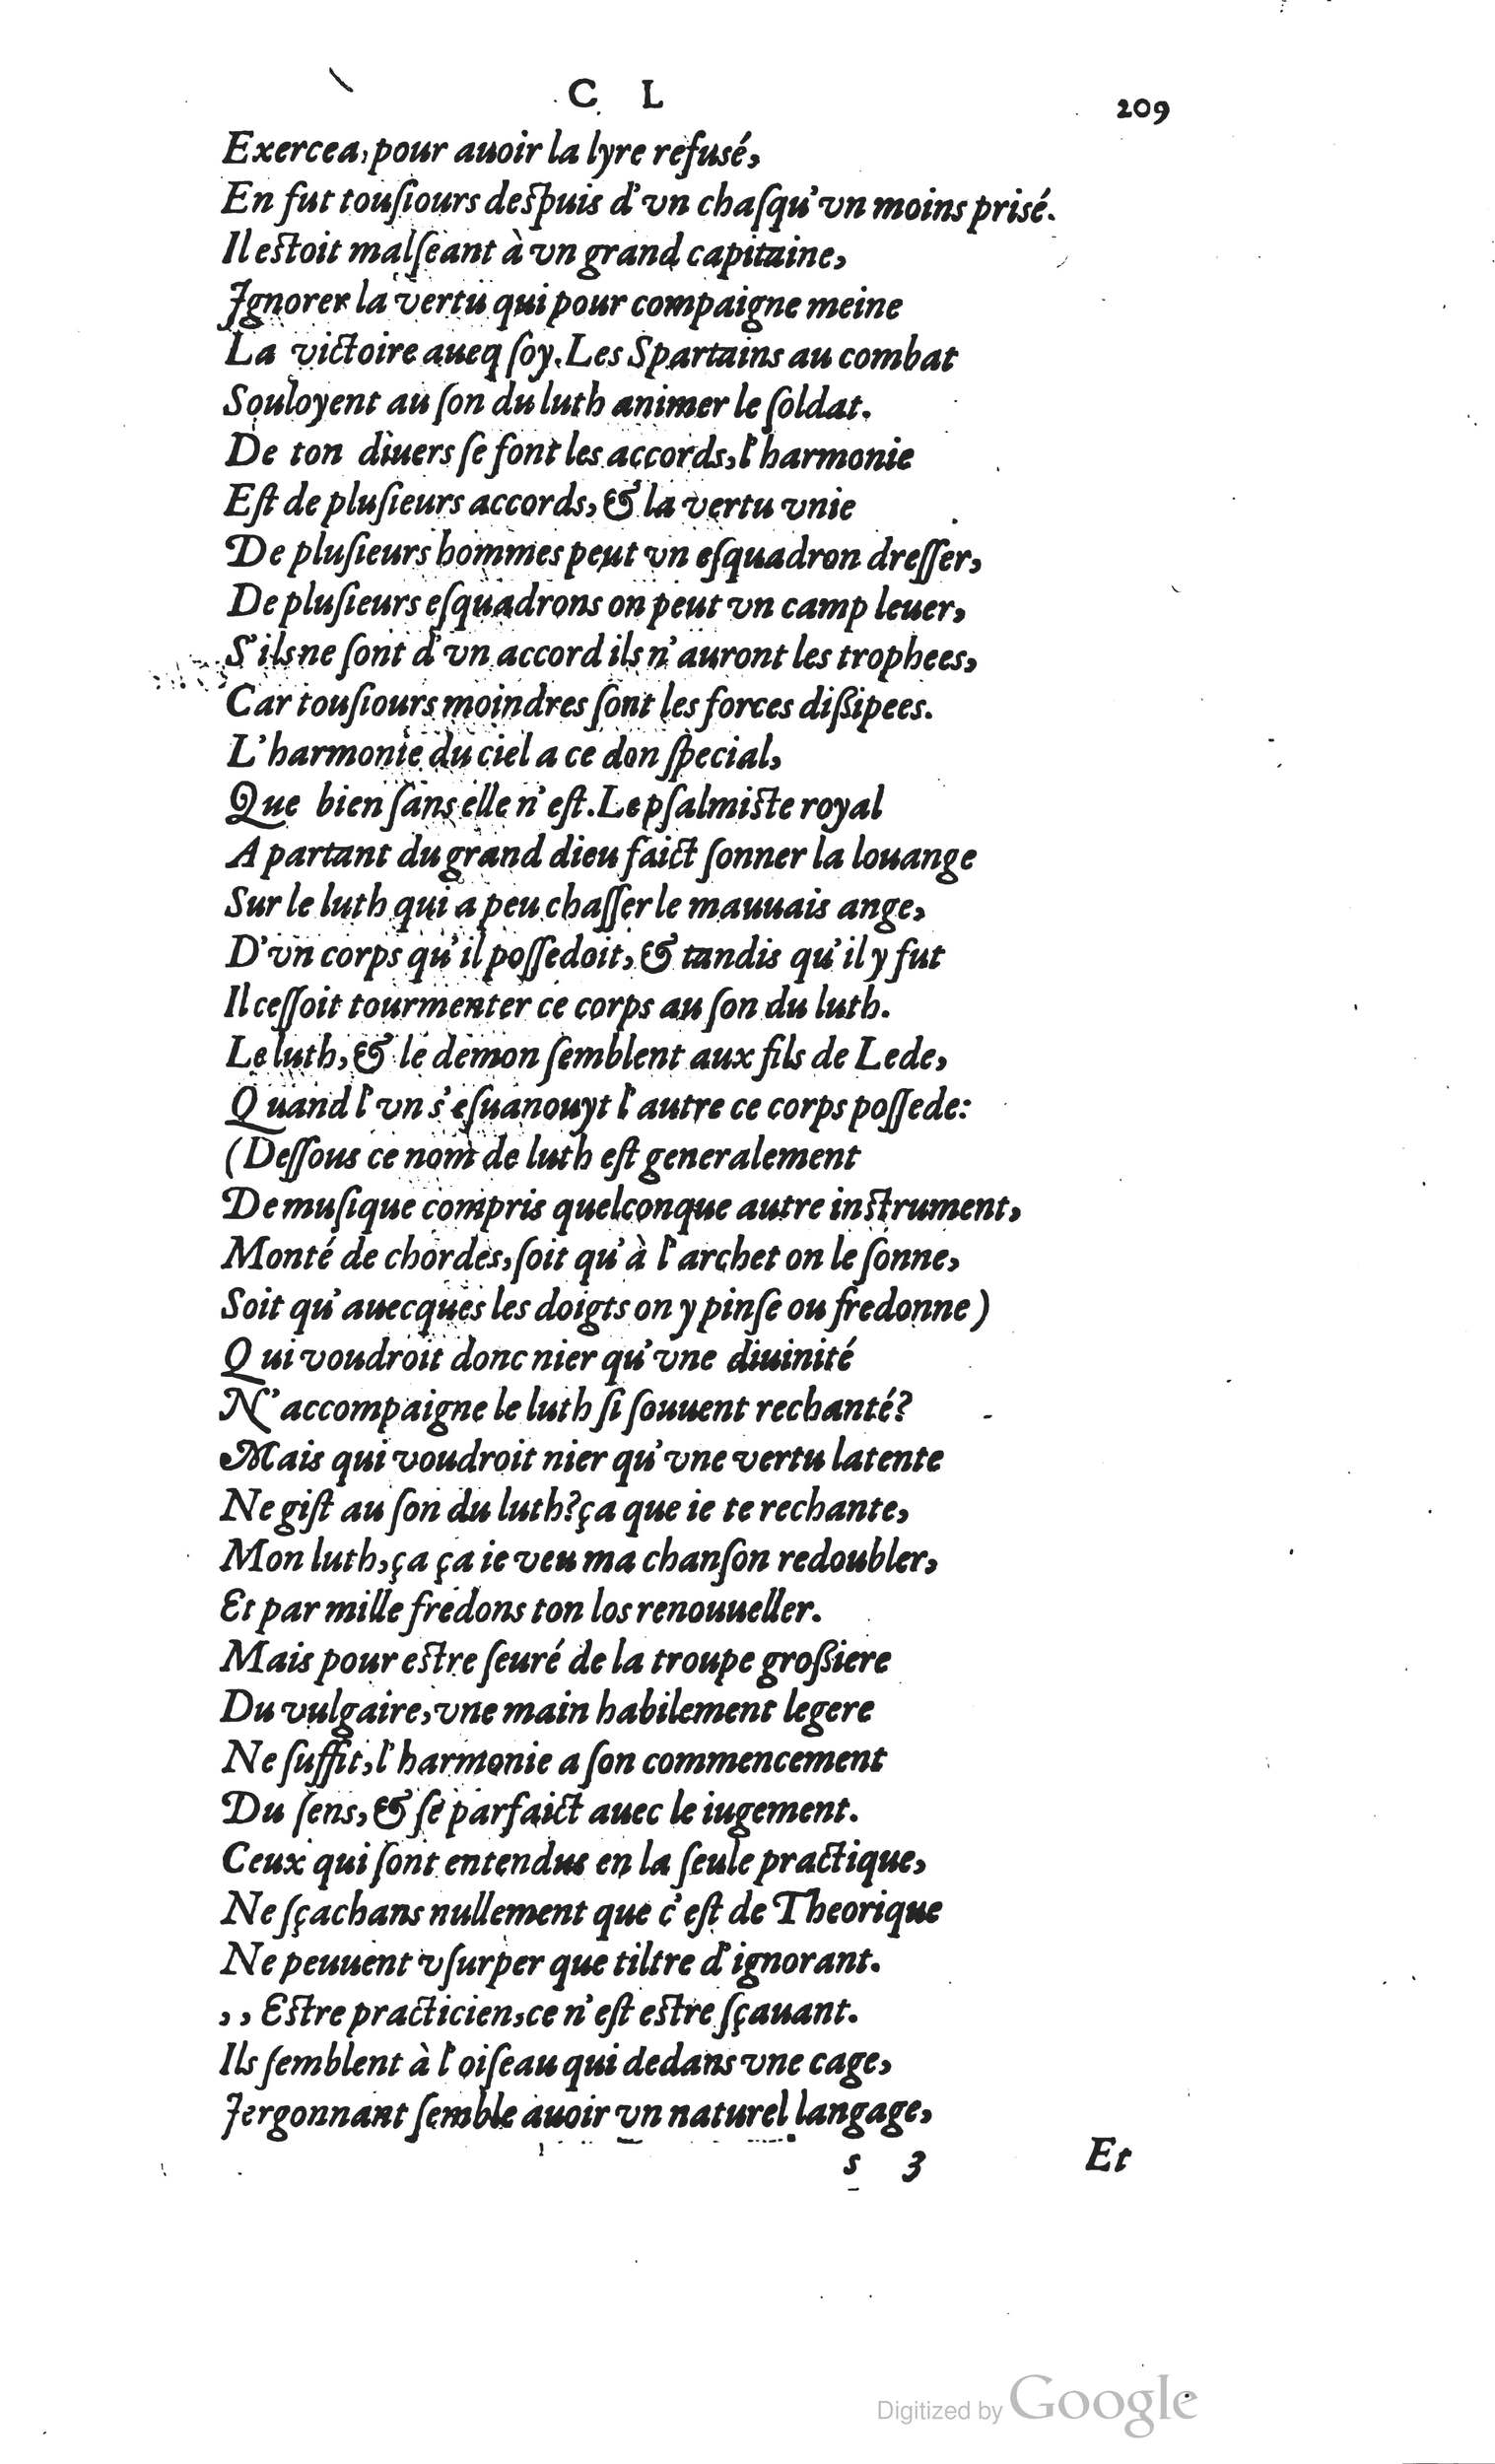 C L 209
Exercea, pour auoir la lyre refusé,
En fut touſiours deſpuis d'vn chaſqu'vn moins prisé.
Il eſtoit malſeant à vn grand capitaine,
Ignorer la vertu qui pour compaigne meine
La victoire aueq ſoy. Les Spartains au combat
Souloyent au ſon du luth animer le ſoldat.
De ton diuers ſe font les accords, l'harmonie
Eſt de pluſieurs accords, & la vertu vnie
De pluſieurs hommes peut vn eſquadron dreſſer,
De pluſieurs eſquadrons on peut vn camp leuer,
S'ils ne ſont d'vn accord ils n'auront les trophees,
Car touſiours moindres ſont les forces dißipees.
L'harmonie du ciel a ce don ſpecial,
Que bien ſans elle n'eſt. Le pſalmiſte royal
A partant du grand dieu faict ſonner la louange
Sur le luth qui a peu chaſſer le mauuais ange,
D'vn corps qu'il poſſedoit, & tandis qu'il y fut
Il ceſſoit tourmenter ce corps au ſon du luth.
Le luth, & le demon ſemblent aux fils de Lede,
Quand l'vn s'eſuanouyt l'autre ce corps poſſede:
(Deſſous ce nom de luth eſt generalement
De muſique compris quelconque autre inſtrument,
Monté de chordes, ſoit qu'à l'archet on le ſonne,
Soit qu'auecques les doigts on y pinſe ou fredonne)
Qui voudroit donc nier qu'vne diuinité
N'accompaigne le luth ſi ſouuent rechanté?
Mais qui voudroit nier qu'vne vertu latente
Ne giſt au ſon du luth? ça que ie te rechante,
Mon luth, ça ça ie veu ma chanſon redoubler,
Et par mille fredons ton los renouueller.
Mais pour eſtre ſeuré de la troupe großiere
Du vulgaire, vne main habilement legere
Ne ſuffit, l'harmonie a ſon commencement
Du ſens, & ſe parfaict auec le iugement.
Ceux qui ſont entendus en la ſeule practique,
Ne ſçachans nullement que c'eſt de Theorique
Ne peuuent vſurper que tiltre d'ignorant.
,, Eſtre practicien, ce n'eſt eſtre ſçauant.
Ils ſemblent à l'oiſeau qui dedans vne cage,
Jergonnant ſemble auoir vn naturel langage,
s 3 Et
Digitized by Google